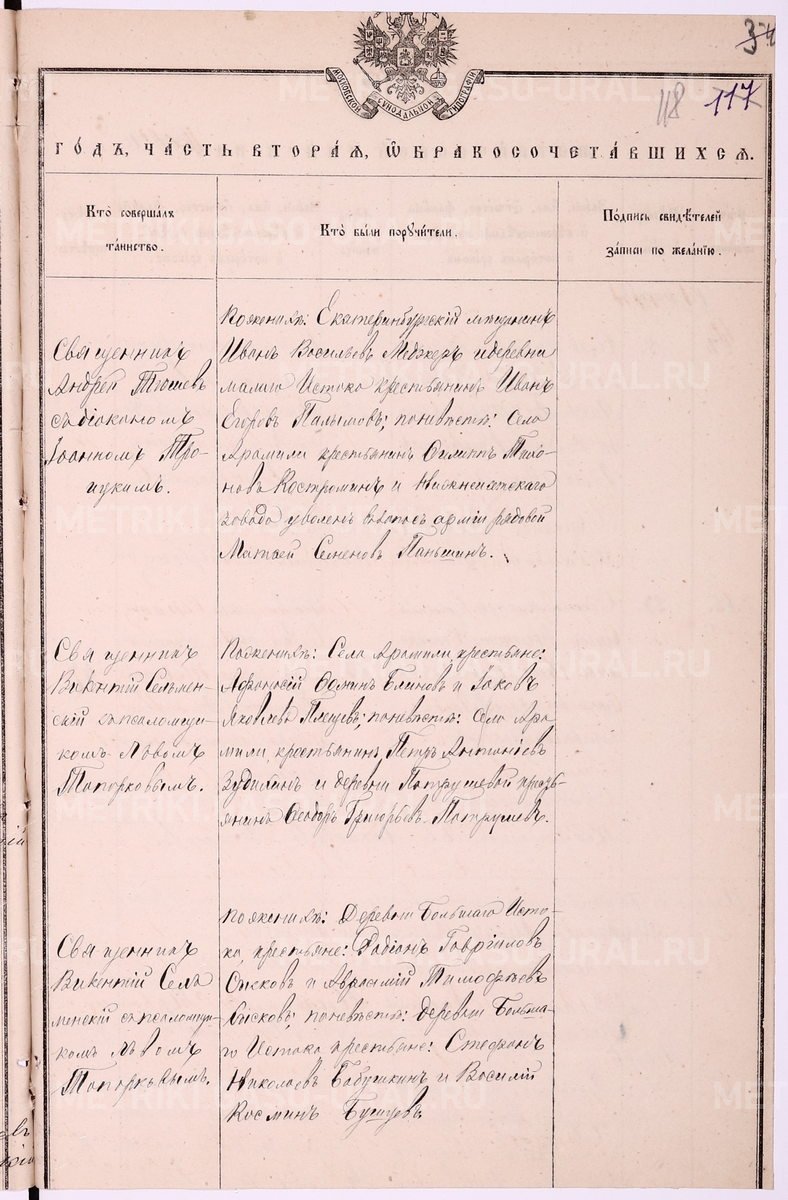 34
118 117
МОСКОВСКОЙ СѴНОДАЛЬНОЙ ТИПОГРАФІИ
ГО́ДЪ, ЧА́СТЬ ВТОРА́Я, Ѽ БРАКОСОЧЕТА́ВШИХСЯ.
Кто̀ соверша́лъ
та́инство.
Кто̀ бы́ли порꙋчи́тели.
По́дпись свидѣ́телей
за́писи по жела́нію.
Священникъ
Андрей Тюшевъ
съ діакономъ
Іоанномъ Тро-
ицкимъ.
По женихѣ: Екатеринбургскій мѣщанинъ
Иванъ Васильевъ Меджеръ и деревни
малаго Истока крестьянинъ Иванъ
Егоровъ Палымовъ; по невѣстѣ: Села
Арамили крестьянинъ Филиппъ Тихо-
новъ Костроминъ и Нижнеисетскаго
завода уволен. въ запасъ арміи рядовой
Матвей Семеновъ Паньшинъ.
Священникъ
Викентій Сельмен-
скій съ псаломщи-
комъ Львомъ
Топорковымъ.
По женихѣ: Села Арамили, крестьяне:
Афанасій Фоминъ Блиновъ и Іаковъ
Яковлевъ Плещевъ; по невѣстѣ: Села Ара-
мили, крестьянинъ Петръ Антоніевъ
Зудихинъ и деревни Патрушевой кресть-
янинъ Ѳеодоръ Григорьевъ Патрушевъ.
Священникъ
Викентій Селъ
менскій съ псаломщи-
комъ Львомъ
Топорковымъ.
По женихѣ: Деревни Большаго Исто-
ка, крестьяне: Родіонъ Гавріиловъ
Сысковъ и Авраамій Тимофѣевъ
Сысковъ; по невѣстѣ: деревни Больша-
го Истока крестьяне: Стефанъ
Николаевъ Бабушкинъ и Василій
Космин Бушуевъ.